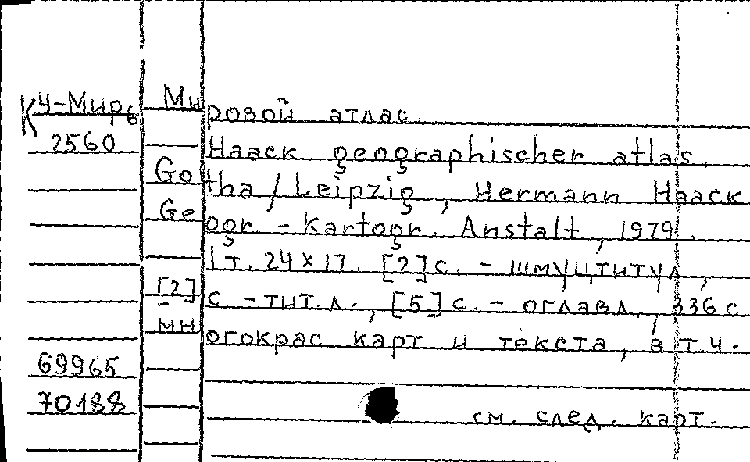 К Ч-Мирь Мировой атлас
2560 Haack geographischer atlas.
Gotha / Leipzig, Hermann Haack
Geogr. - Kartogr. Anstalt, 1979.
1 т. 24 х 17. [2] с. - шмуцтитул,
[2] с - тит. л., [5] с. - оглавл., 336 с
многокрас карт и текста, в т. ч.
69965
70188
см. след. карт.